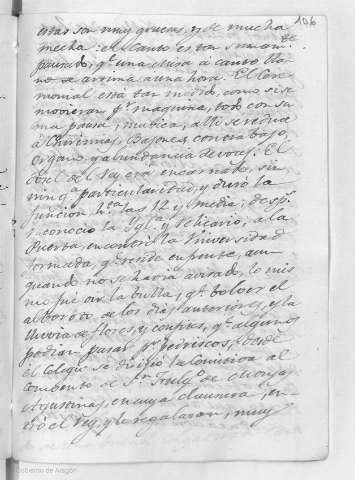 106
estas son muy gruesas, y de mucha
mecha: el canto es tan sumam.te
pausado, q.e una visita a canto lla
no se arrima a una hora. El Cere
monial esta tan medido, como si se
movieran p.r maquina, todo con su
ma pausa; musica, alli se reduce
a Chirimias, Bajones, contrabajo,
organo, y abundancia de voces. El
del Rey era encarnado, sin
ning.a particularidad, y duró la
funcion h.ta las 12 y media; desp.s
reconoció la Ygl.a y Relicario, a la
Puerta encontró la Universidad
formada, q.e reside en frente, aun
quando no se havia avisado, lo mis
mo fué oir la bulla, q.e bolver el
alboroto de los dias anteriores, y la
lluvia de flores, y confites, q.e algunos
podian pasar p.r pedriscos; desde
el Colegio se dirijió la Comitiva al
Combento de de Monjas
Agustinas, en cuya clausura en
tró el Rey, y le regalaron, muy
Gobierno de Aragón